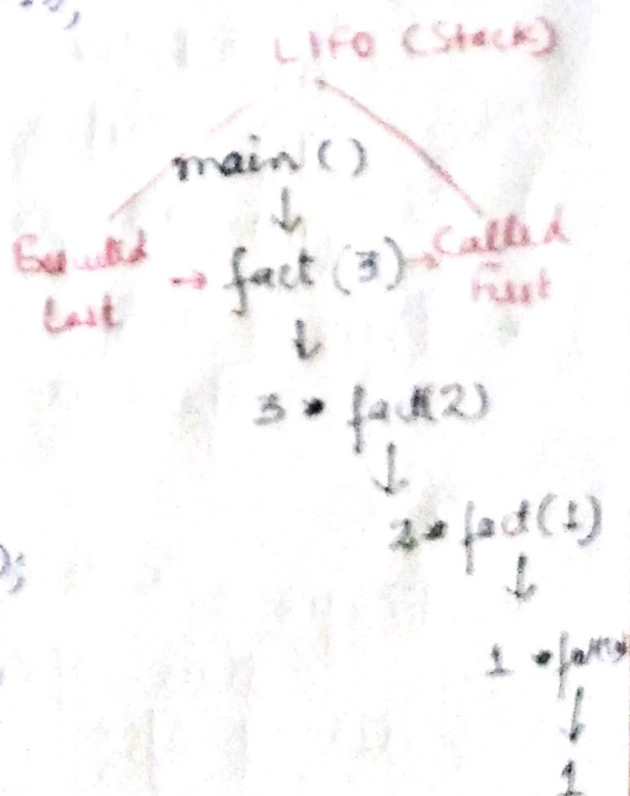 LIFO (Stack)
main ()
Executed
Last
→ fact (3) →
Called
First
3 * fact(2)
2 * fact (1)
1 *
1